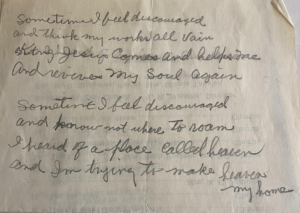 Sometime I feel discouraged
and think my work all vain
King Jesus Comes and helps me
And revives My Soul again
Sometime I feel discouraged
and know not where To roam
I heard of a place called heaven
and Im trying to make heaven
my home